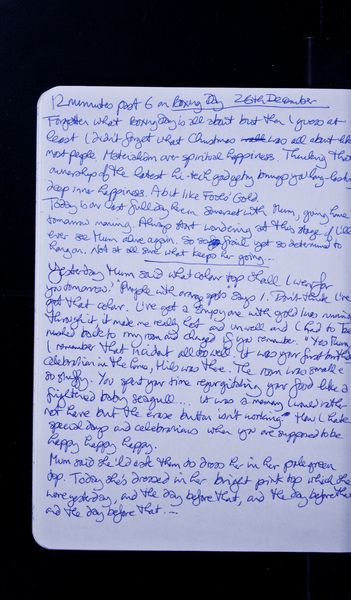 12 minutes past 6 on Boxing Day 26th December
Forgotten what Boxing Day is all about but then I guess at
least I didn't forget what Christmas was all about like
most people. Materialism over spiritual happiness. Thinking that
ownership of the latest hi-tech gadgetry brings you long-lasting
deep inner happiness. A bit like Fools' Gold.
Today is our last full day here in Somerset with Mum, going home
tomorrow morning. Always start wondering at this stage if I'll
ever see Mum alive again. So frail yet so determined to
hang on. Not at all sure what keeps her going...
Yesterday Mum said what colour top shall I wear for
you tomorrow.' 'Purple with orange spots' says I. 'Don't think I've
got that colour. I've got a one with gold lines running
through it, it made me really hot and unwell and I had to be
rushed back to my room and changed if you remember.' 'Yes Mum,
I remember that incident all too well. It was your first birthday
celebration in the home, was there. The room was small &
so stuffy. You spent your time regurgitating your food like a
frightened baby seagull... It was a memory I would rather
not have but the erase button isn't working.' How I hate
special days and celebrations when you are supposed to be
happy happy happy.
Mum said she'll ask them to dress her in her pale green
top. Today she's dressed in her bright pink top which she
wore yesterday, and the day before that, and the day before that
and the day before that....